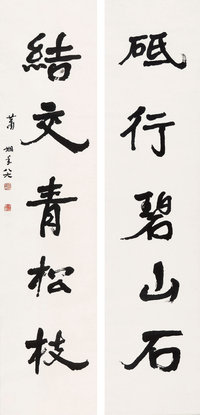 砥行碧山石
結交青松枝
蕭嫻